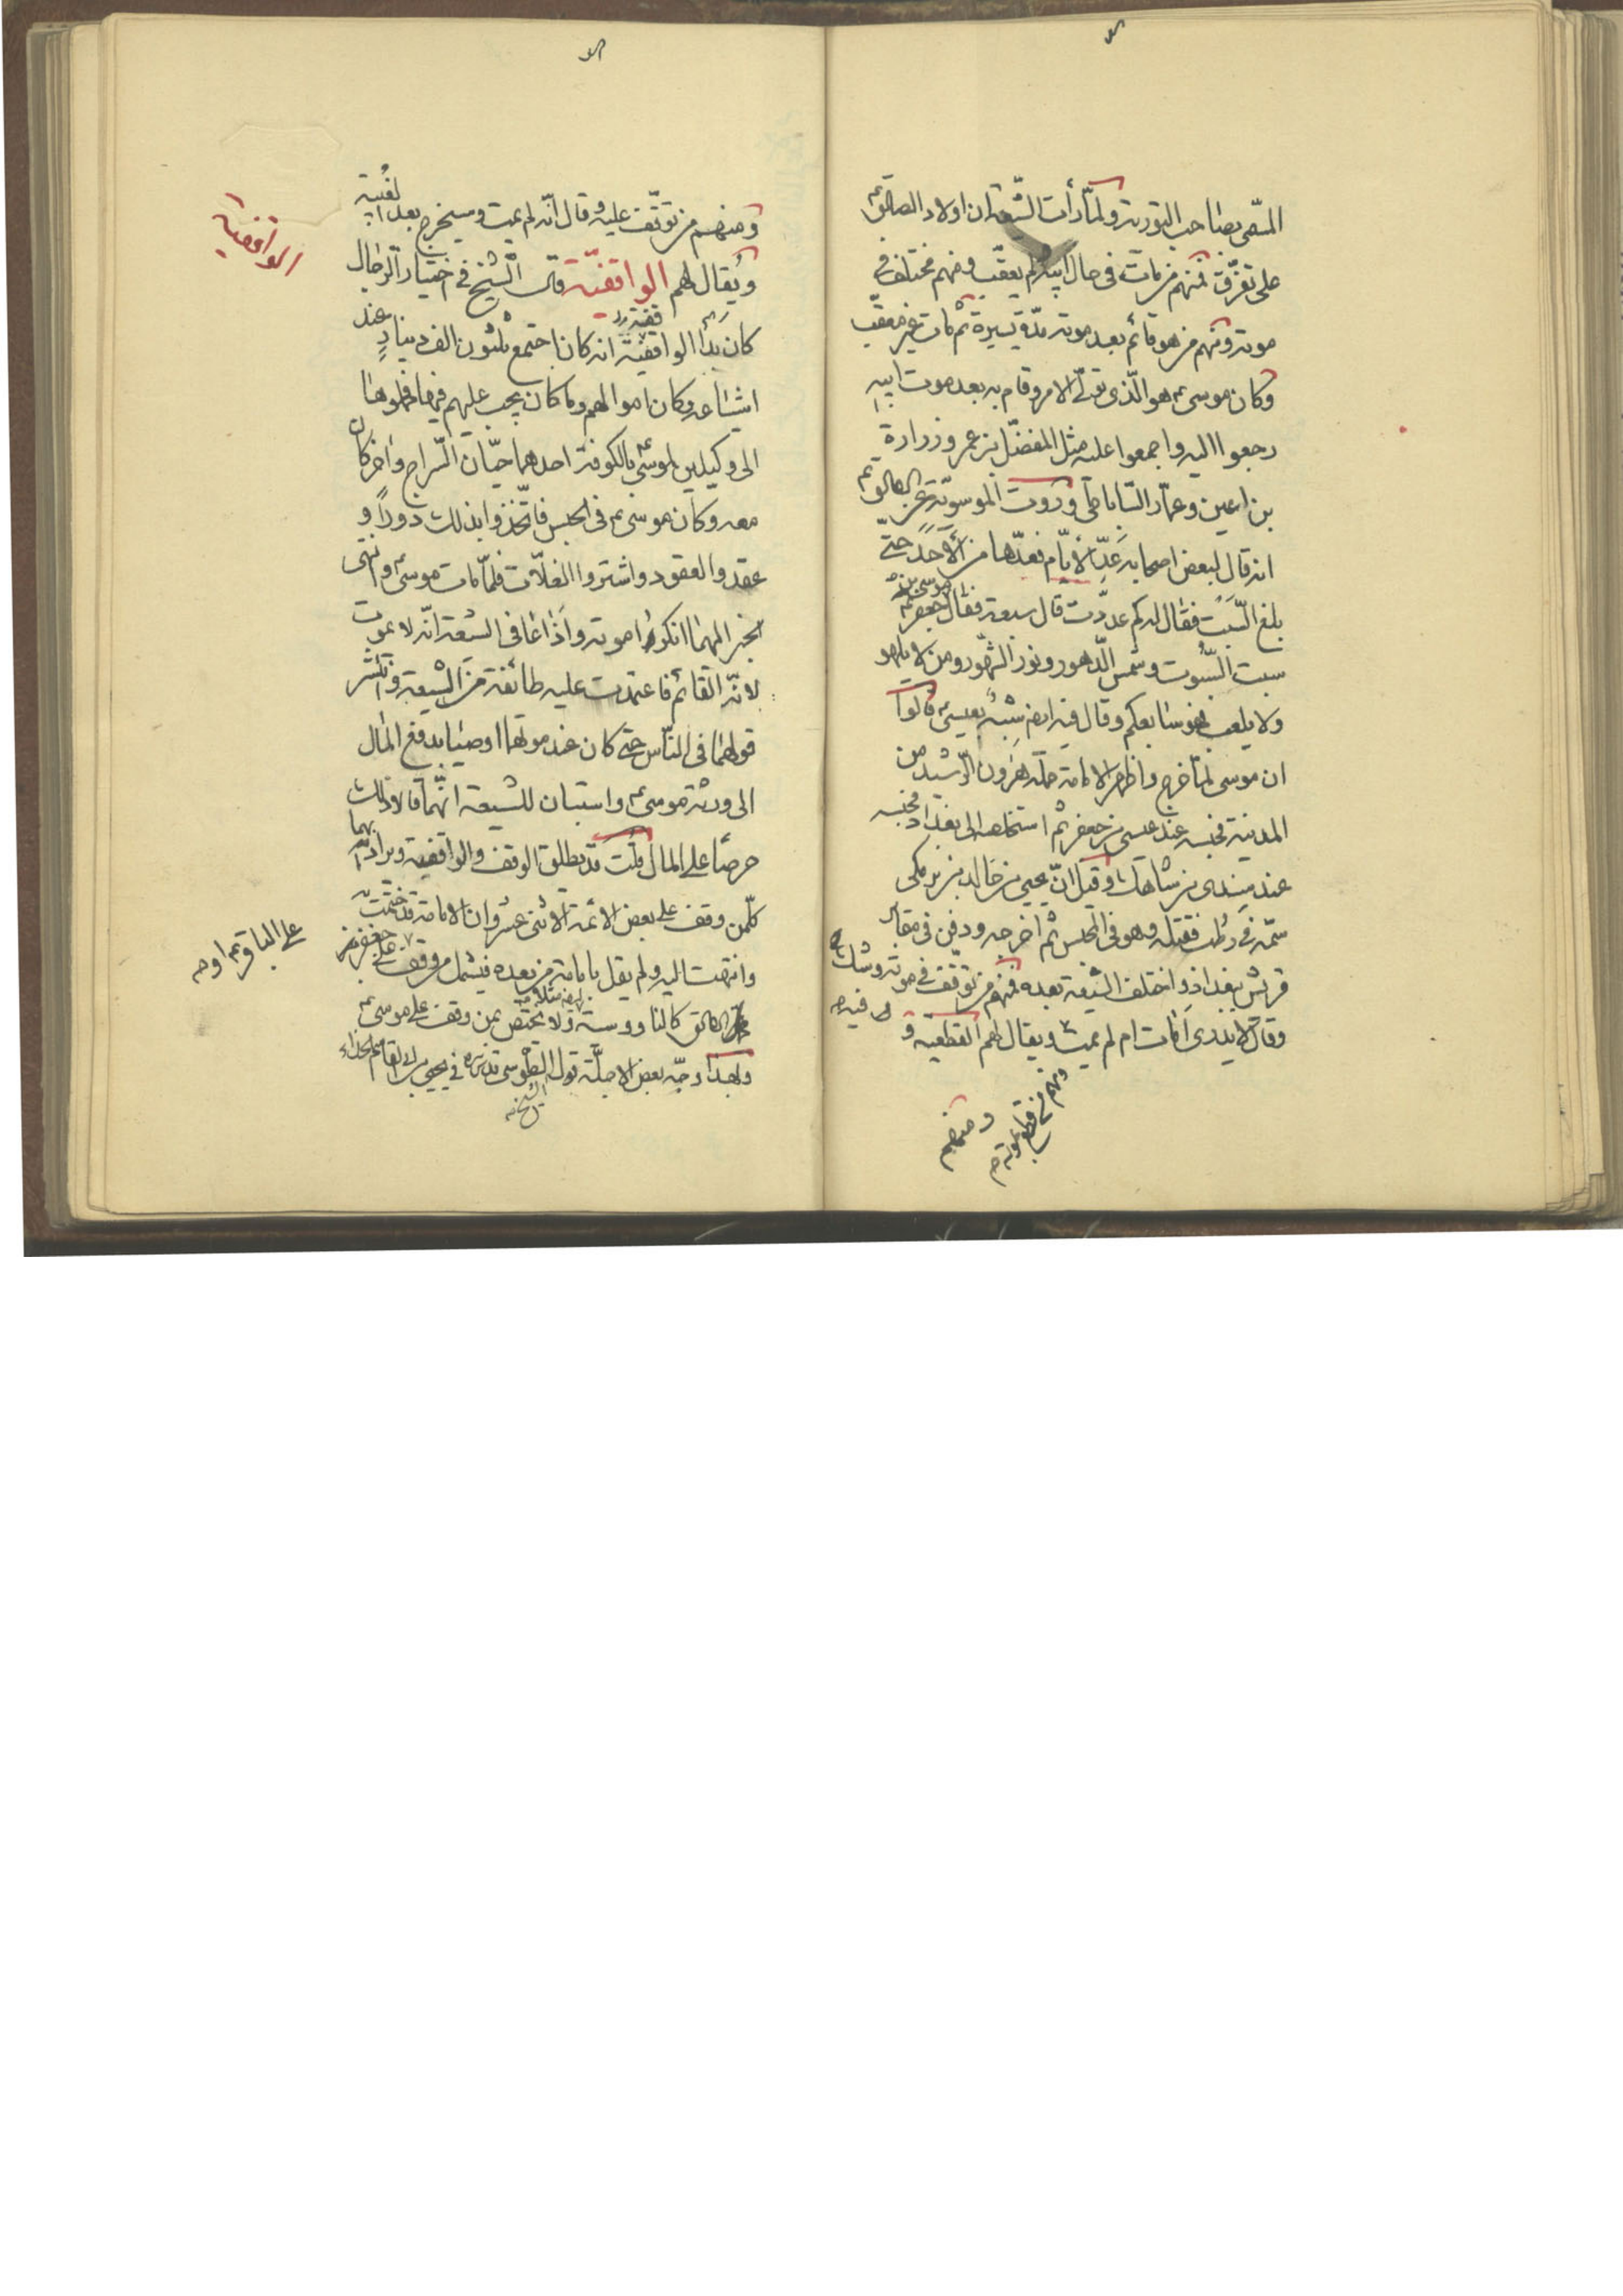 المسمى بصاحب التورية ولما رأت الشيعة ان اولاد الصادق ع
على تفرق فمنهم من مات فى حال ابيه ولم يعقب ومنهم مختلف فى
موته ومنهم من هو قائم بعد موته مدة يسيرة ثم مات غير معقب
وكان موسى ع هو الذى تولى الامر وقام به بعد موت ابيه
رجعوا اليه واجمعوا عليه مثل المفضل بن عمر وزرارة
بن اعين وعمار الساباطى وروت الموسوية عن الصادق ع
انه قال لبعض اصحابه عد الأيام فعدها من الأحد حتى
بلغ السبت فقال له كم عددت قال سبعة فقال جعفر ع
موسى بن
سبت السبوت وشمس الدهور ونور الشهور ومن لا يلهو
ولا يلعب وهو سابعكم وقال فيه ايضا شبه بعيسى ع قالوا
ان موسى لما خرج واظهر الامامة حمله هرون الرشيد من
المدينة فحبسه عند عيسى بن جعفر ثم استخصه الى بغداد فحبسه
عند سندى بن شاهك وقيل ان يحيى بن خالد بن برمكى
سمه فى رطب فقتله وهو فى الحبس ثم اخرجه ودفن فى مقابر
قريش ببغداذ واختلف الشيعة بعده فمنهم من توقف فى موته وشك
فيه
وقال لا يدرى أمات ام لم يمت ويقال لهم القطعية و
ومنهم من قطع بموته
ومنهم
ومنهم من توقف عليه وقال انه لم يمت وسيخرج بعد الغيبة
ويقال لهم الواقفية قال الشيخ فى اختيار الرجال
الواقفية
كان بدأ الواقفية انه كان اجتمع ثلثون الف دينار عند
اشاعثه وكان اموالهم وما كان يجب عليهم فيها فحملوها
الى وكيلين لموسى ع بالكوفة احدهما حيان السراج واخر كان
معه وكان موسى ع فى الحبس فاتخذوا بذلك دورا و
عقدوا العقود واشتروا الغلات فلما مات موسى ع وانتهى
الخبر اليهما انكروا موته واذاعا فى الشيعة انه لا يموت
لانه القائم فاعتمدت عليه طائفة من الشيعة وانتشر
قولهما فى الناس حتى كان عند موتهما اوصيا بدفع المال
الى ورثة موسى ع واستبان للشيعة انهما قالا ذلك
حرصا على المال قلت قد يطلق الوقف والواقفية ويراد بهما
كلمن وقف على بعض الائمة الاثنى عشر وان الامامة قد ختمت به
وانتهت اليه ولم يقل بامامة من بعده فيشمل من وقف على جعفر بن
على الباقر ع او
الصادق كالناووسية ولا يختص بمن وقف على موسى ع
وبهذا وجه بعض الاجلة قول الطوسى قدس سره فى يحيى بن ابى القاسم الحذاء
الشيخ